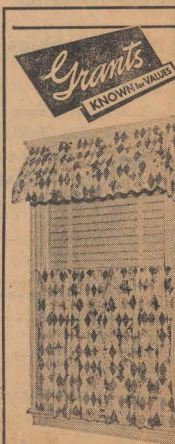 Grants
KNOWN for VALUES